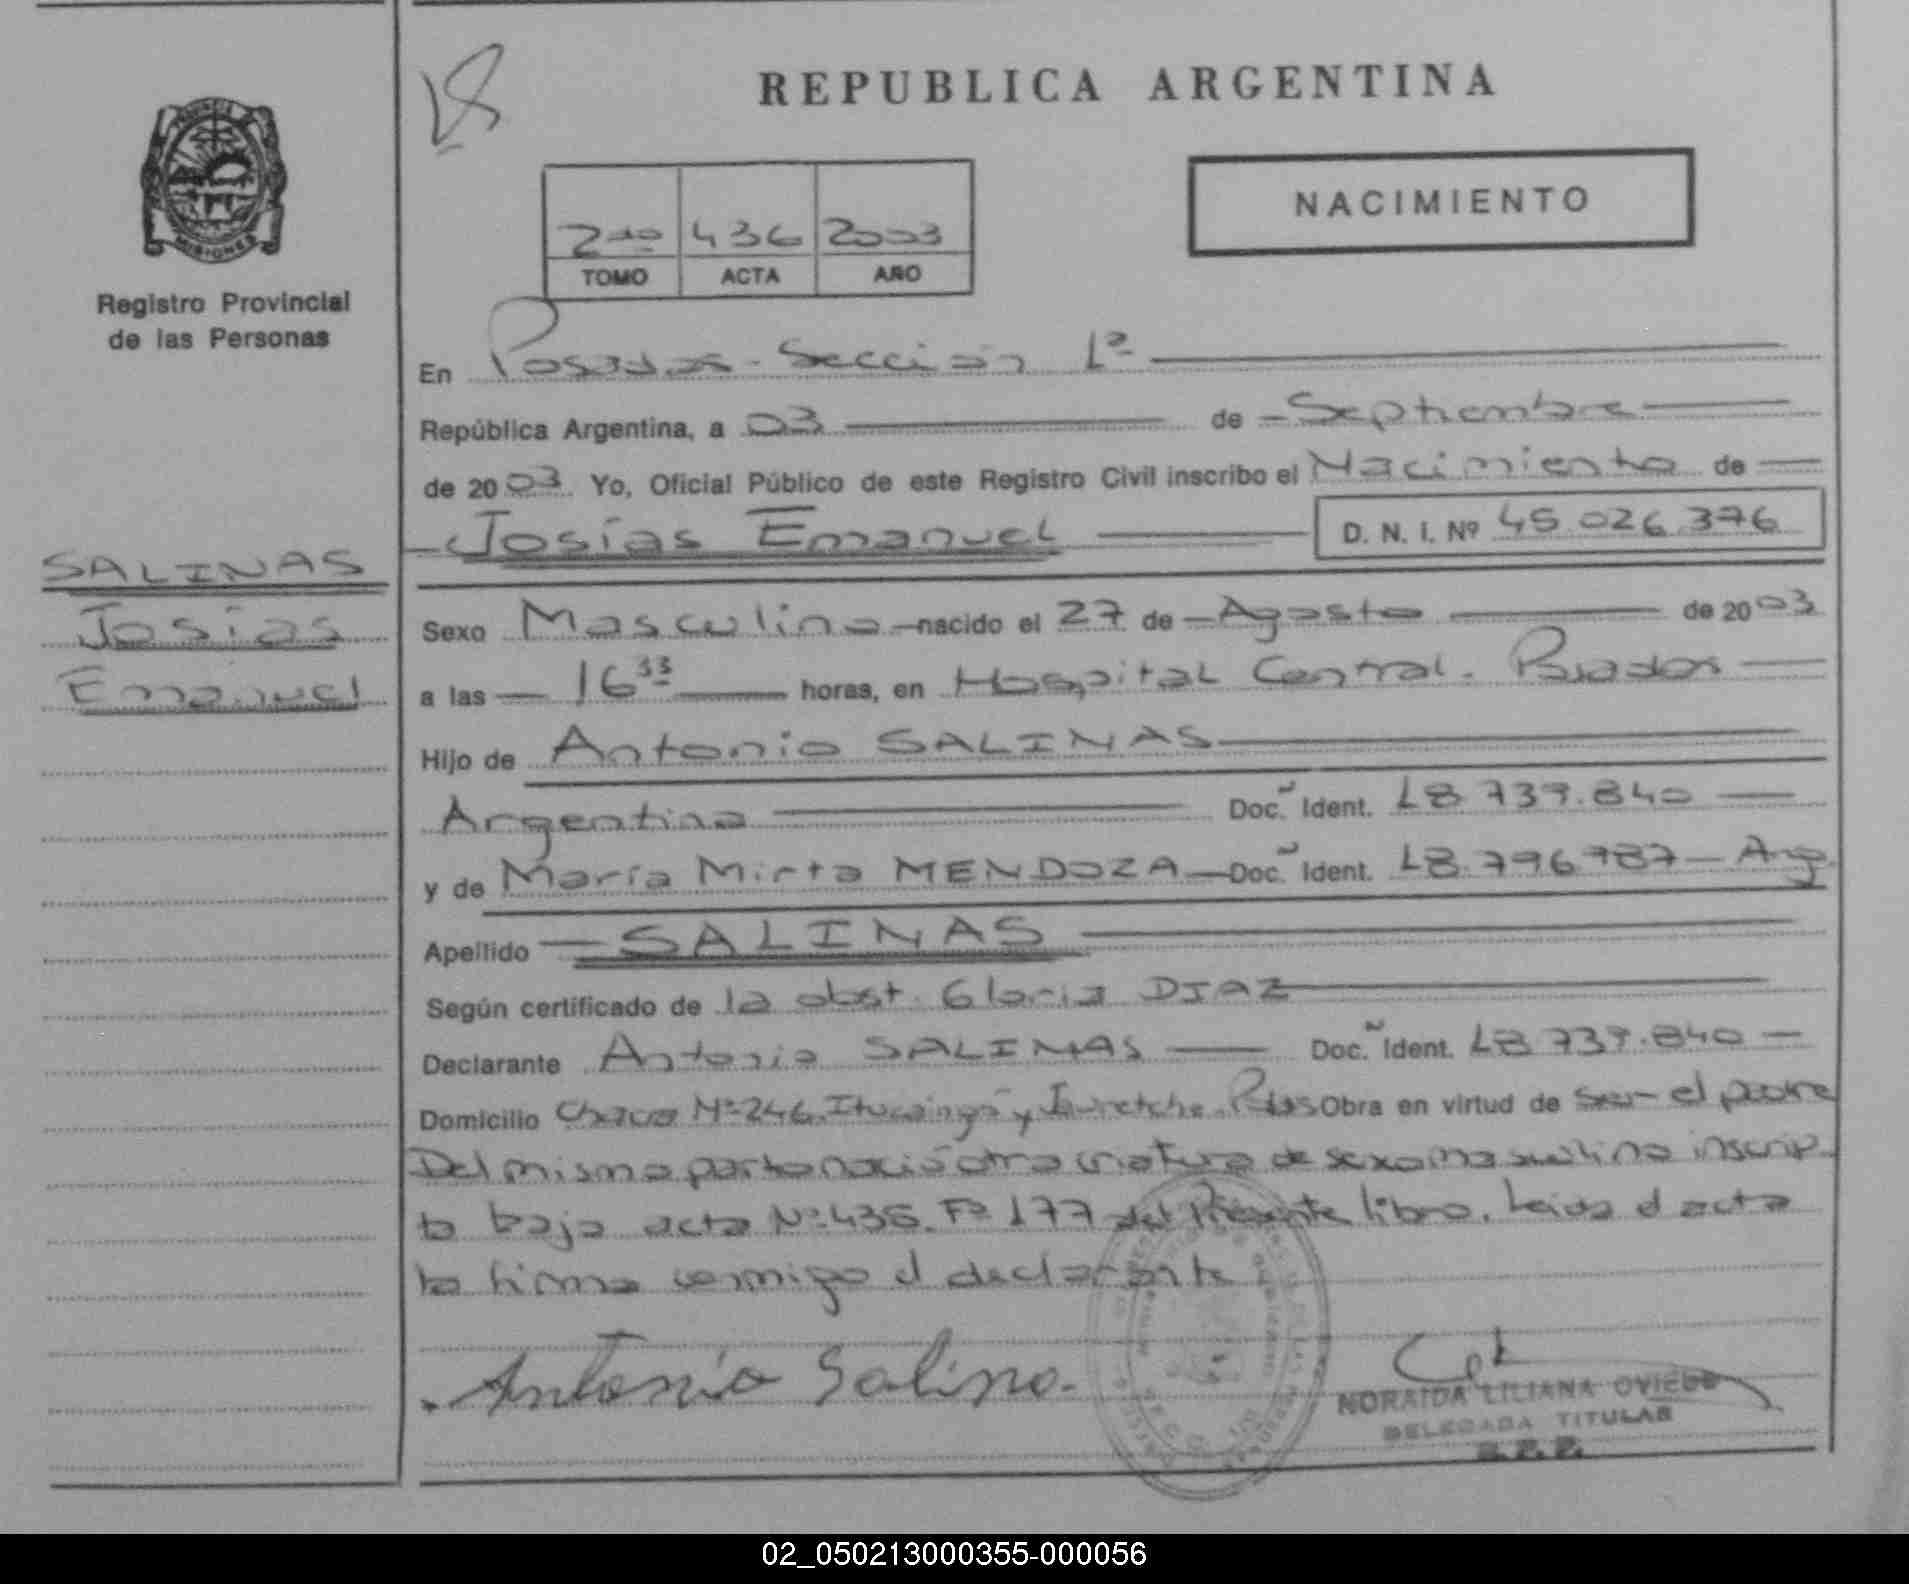 REPUBLICA ARGENTINA
PROVINCIA DE
MISIONES
Registro Provincial
de las Personas
NACIMIENTO
2do 436 2003
TOMO ACTA AÑO
En Posadas - Sección 1ª
República Argentina, a 03 de Septiembre
de 2003 Yo, Oficial Público de este Registro Civil inscribo el Nacimiento de
Josías Emanuel D. N. I. Nº 45.026.376
SALINAS
Josías
Emanuel
Sexo Masculino nacido el 27 de Agosto de 2003
a las 16 33 horas, en Hospital Central. Posadas
Hijo de Antonio SALINAS
Argentino Doc. Ident. 18.739.840
y de María Mirta MENDOZA Doc. Ident. 18.796.787 - Arg.
Apellido SALINAS
Según certificado de la obst. Gloria DIAZ
Declarante Antonio SALINAS Doc. Ident. 18.739.840
Domicilio Chacra Nº 246. Ituzaingó y Jauretche. Pdas Obra en virtud de ser el padre
Del mismo parto nació otra criatura de sexo masculino inscrip-
ta bajo acta Nº 435. Fº 177 del Presente libro. Leída el acta
la firma conmigo el declarante
Antonio Salino.
NORAIDA LILIANA OVIEDO
DELEGADA TITULAR
R. P. P.
02_050213000355-000056